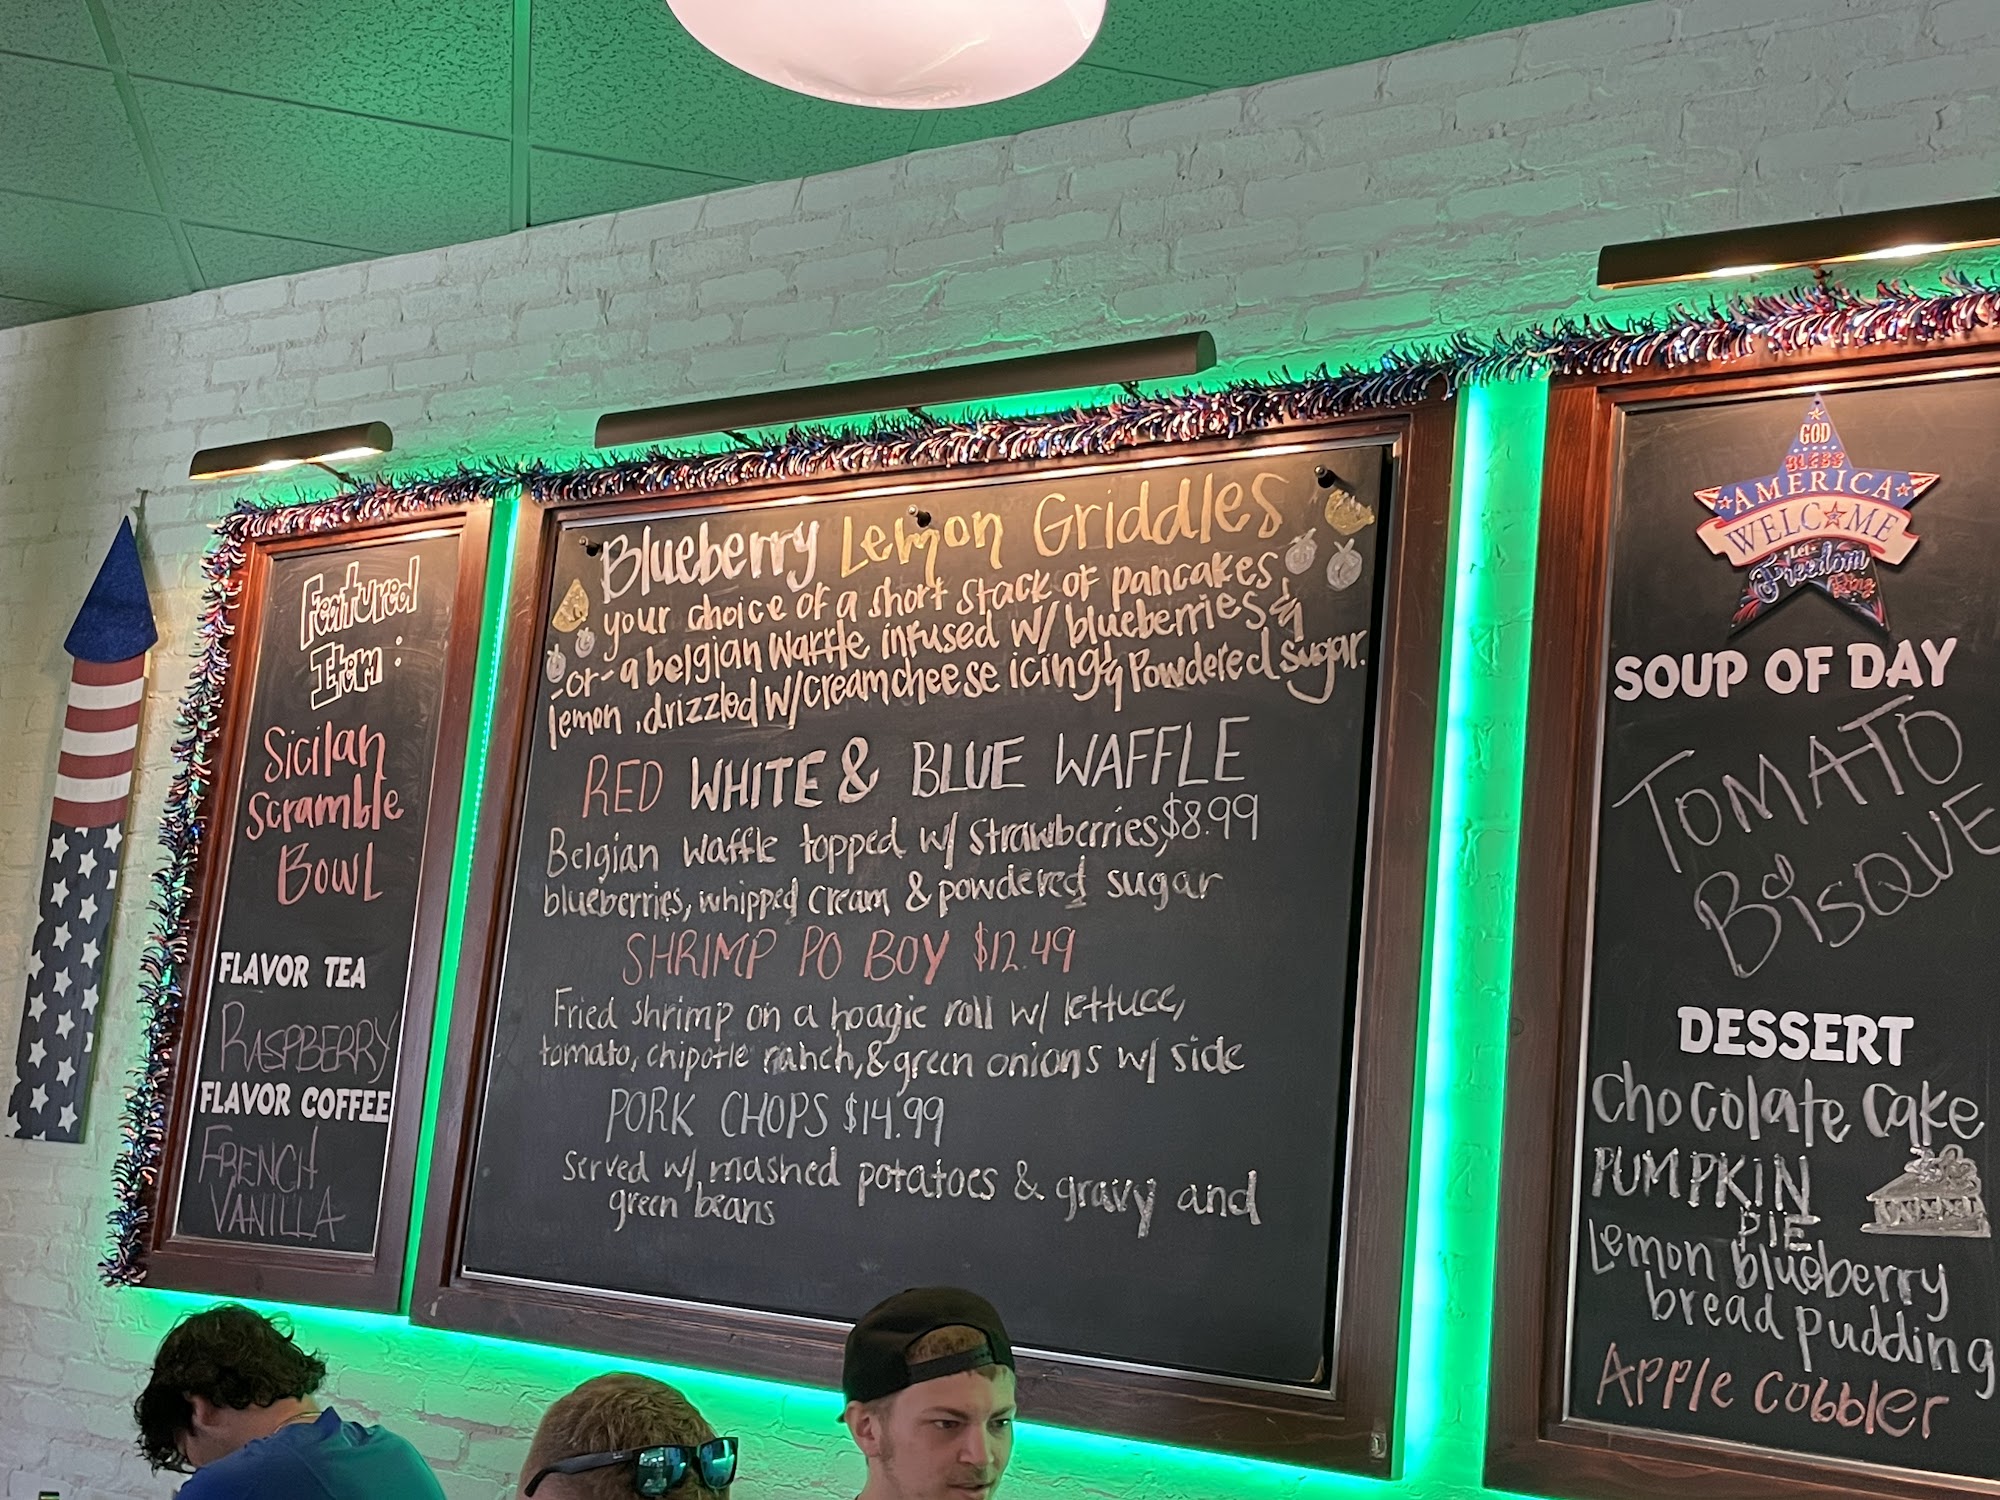 Featured
Item:
Sicilan
Scramble
Bowl
FLAVOR TEA
RASPBERRY
FLAVOR COFFEE
FRENCH
VANILLA
Blueberry Lemon Griddles
your choice of a short stack of pancakes
-or- a belgian waffle infused w/ blueberries &
lemon, drizzled w/creamcheese icing & Powdered sugar.
RED WHITE & BLUE WAFFLE
Belgian waffle topped w/ strawberries, $8.99
blueberries, whipped cream & powdered sugar
SHRIMP PO BOY $12.49
Fried shrimp on a hoagie roll w/ lettuce,
tomato, chipotle ranch, & green onions w/ side
PORK CHOPS $14.99
Served w/ mashed potatoes & gravy and
green beans
GOD
BLESS
AMERICA
WELCOME
Let
Freedom
Ring
SOUP OF DAY
TOMATO
BISQUE
DESSERT
Chocolate Cake
PUMPKIN
PIE
Lemon blueberry
bread pudding
Apple Cobbler